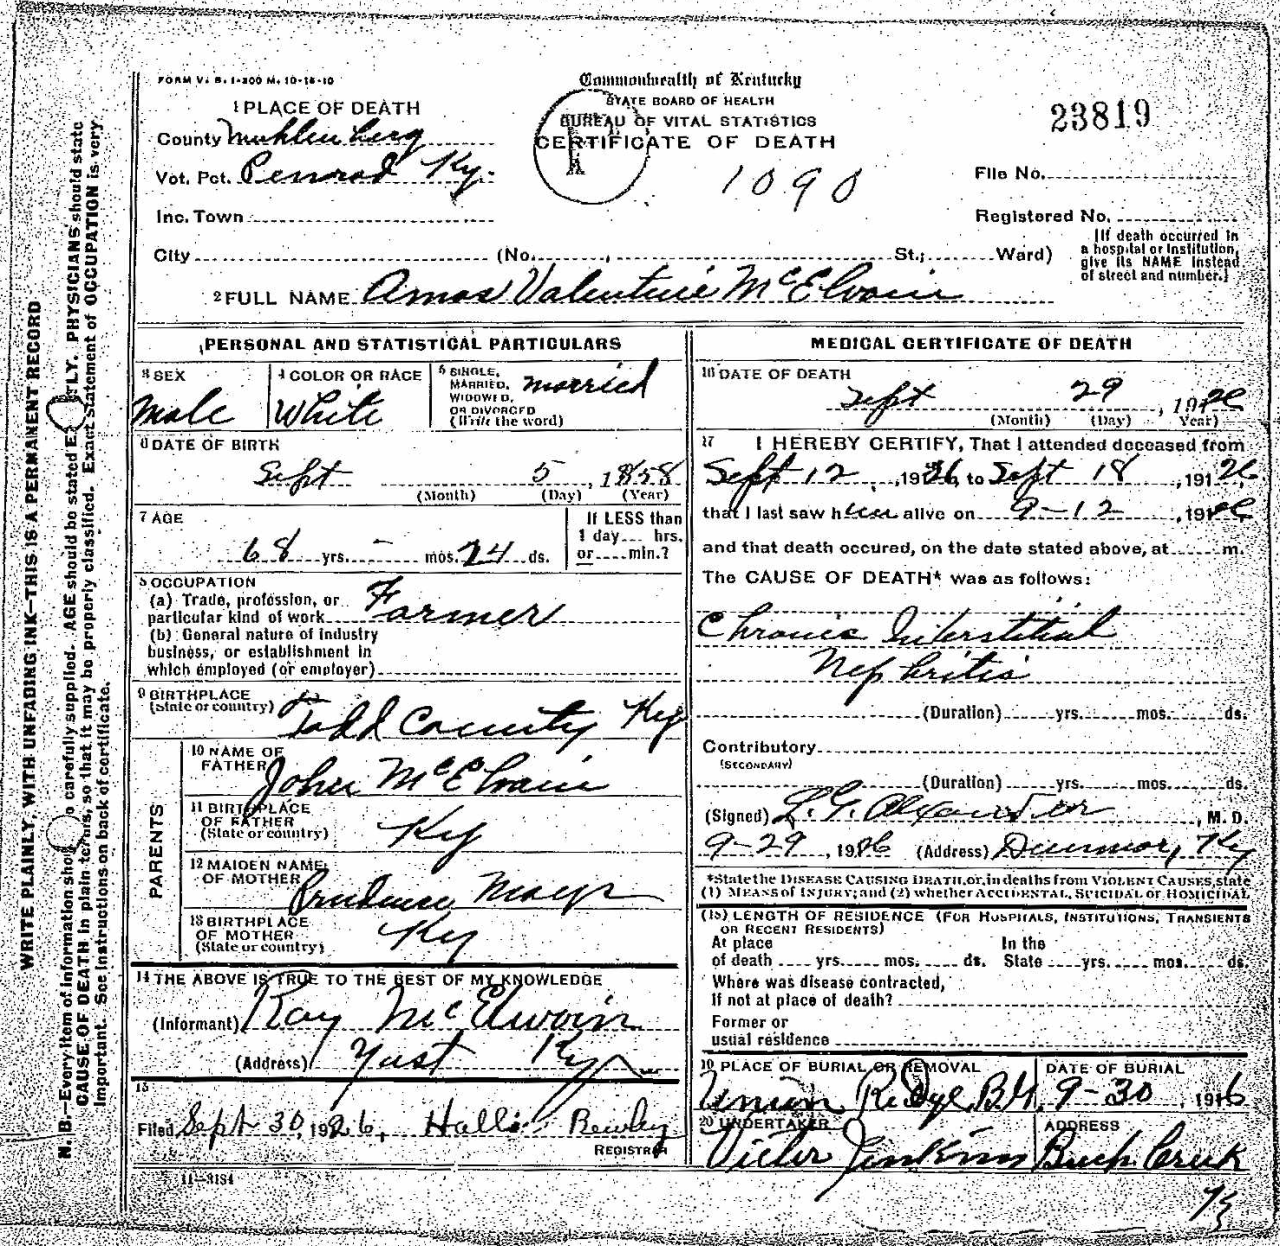 FORM V. S. 1-200 M. 10-16-10
Commonwealth of Kentucky
STATE BOARD OF HEALTH
BUREAU OF VITAL STATISTICS
CERTIFICATE OF DEATH
23819
1090
1 PLACE OF DEATH
County Muhlenberg
Vot. Pct. Penrod Ky.
Inc. Town
City (No. , St.; Ward)
File No.
Registered No.
[If death occurred in
a hospital or institution,
give its NAME instead
of street and number.]
2 FULL NAME Amos Valentine McElvain
PERSONAL AND STATISTICAL PARTICULARS
3 SEX
Male
4 COLOR OR RACE
White
5 SINGLE,
MARRIED,
WIDOWED,
OR DIVORCED
(Write the word)
married
6 DATE OF BIRTH
Sept 5, 1858
(Month) (Day) (Year)
7 AGE
68 yrs. - mos. 24 ds.
If LESS than
1 day.... hrs.
or.....min.?
8 OCCUPATION
(a) Trade, profession, or
particular kind of work Farmer
(b) General nature of industry
business, or establishment in
which employed (or employer)
9 BIRTHPLACE
(State or country) Todd County Ky
PARENTS
10 NAME OF
FATHER John McElvain
11 BIRTHPLACE
OF FATHER
(State or country) Ky
12 MAIDEN NAME
OF MOTHER Prudence
13 BIRTHPLACE
OF MOTHER
(State or country) Ky
14 THE ABOVE IS TRUE TO THE BEST OF MY KNOWLEDGE
(Informant) Ray McElwain
(Address) Yost Ky
15
Filed Sept 30, 1926, Hallie
REGISTRAR
11-3184
MEDICAL CERTIFICATE OF DEATH
16 DATE OF DEATH
Sept 29, 1926
(Month) (Day) Year)
17 I HEREBY CERTIFY, That I attended deceased from
Sept 12, 1926, to Sept 18, 1926,
that I last saw him alive on 9-12, 1926
and that death occured, on the date stated above, at......m.
The CAUSE OF DEATH* was as follows:
Chronic Interstitial
Nephritis
(Duration) yrs. mos. ds.
Contributory
(SECONDARY)
(Duration) yrs. mos. ds.
(Signed) L. G. Alexander, M. D.
9-29, 1926 (Address) Dunmor, Ky
*State the DISEASE CAUSING DEATH, or, in deaths from VIOLENT CAUSES, state
(1) MEANS of INJURY; and (2) whether ACCIDENTAL, SUICIDAL or HOMICIDAL.
(18) LENGTH OF RESIDENCE (FOR HOSPITALS, INSTITUTIONS, TRANSIENTS
OR RECENT RESIDENTS)
At place
of death yrs. mos. ds.
In the
State yrs. mos. ds.
Where was disease contracted,
if not at place of death?
Former or
usual residence
19 PLACE OF BURIAL OR REMOVAL
Union
DATE OF BURIAL
9-30, 1926
20 UNDERTAKER
Victor Jenkins
ADDRESS
Creek
Ky
WRITE PLAINLY, WITH UNFADING INK—THIS IS A PERMANENT RECORD
N. B.—Every item of information should be carefully supplied. AGE should be stated EXACTLY. PHYSICIANS should state
CAUSE OF DEATH in plain terms, so that it may be properly classified. Exact statement of OCCUPATION is very
important. See instructions on back of certificate.